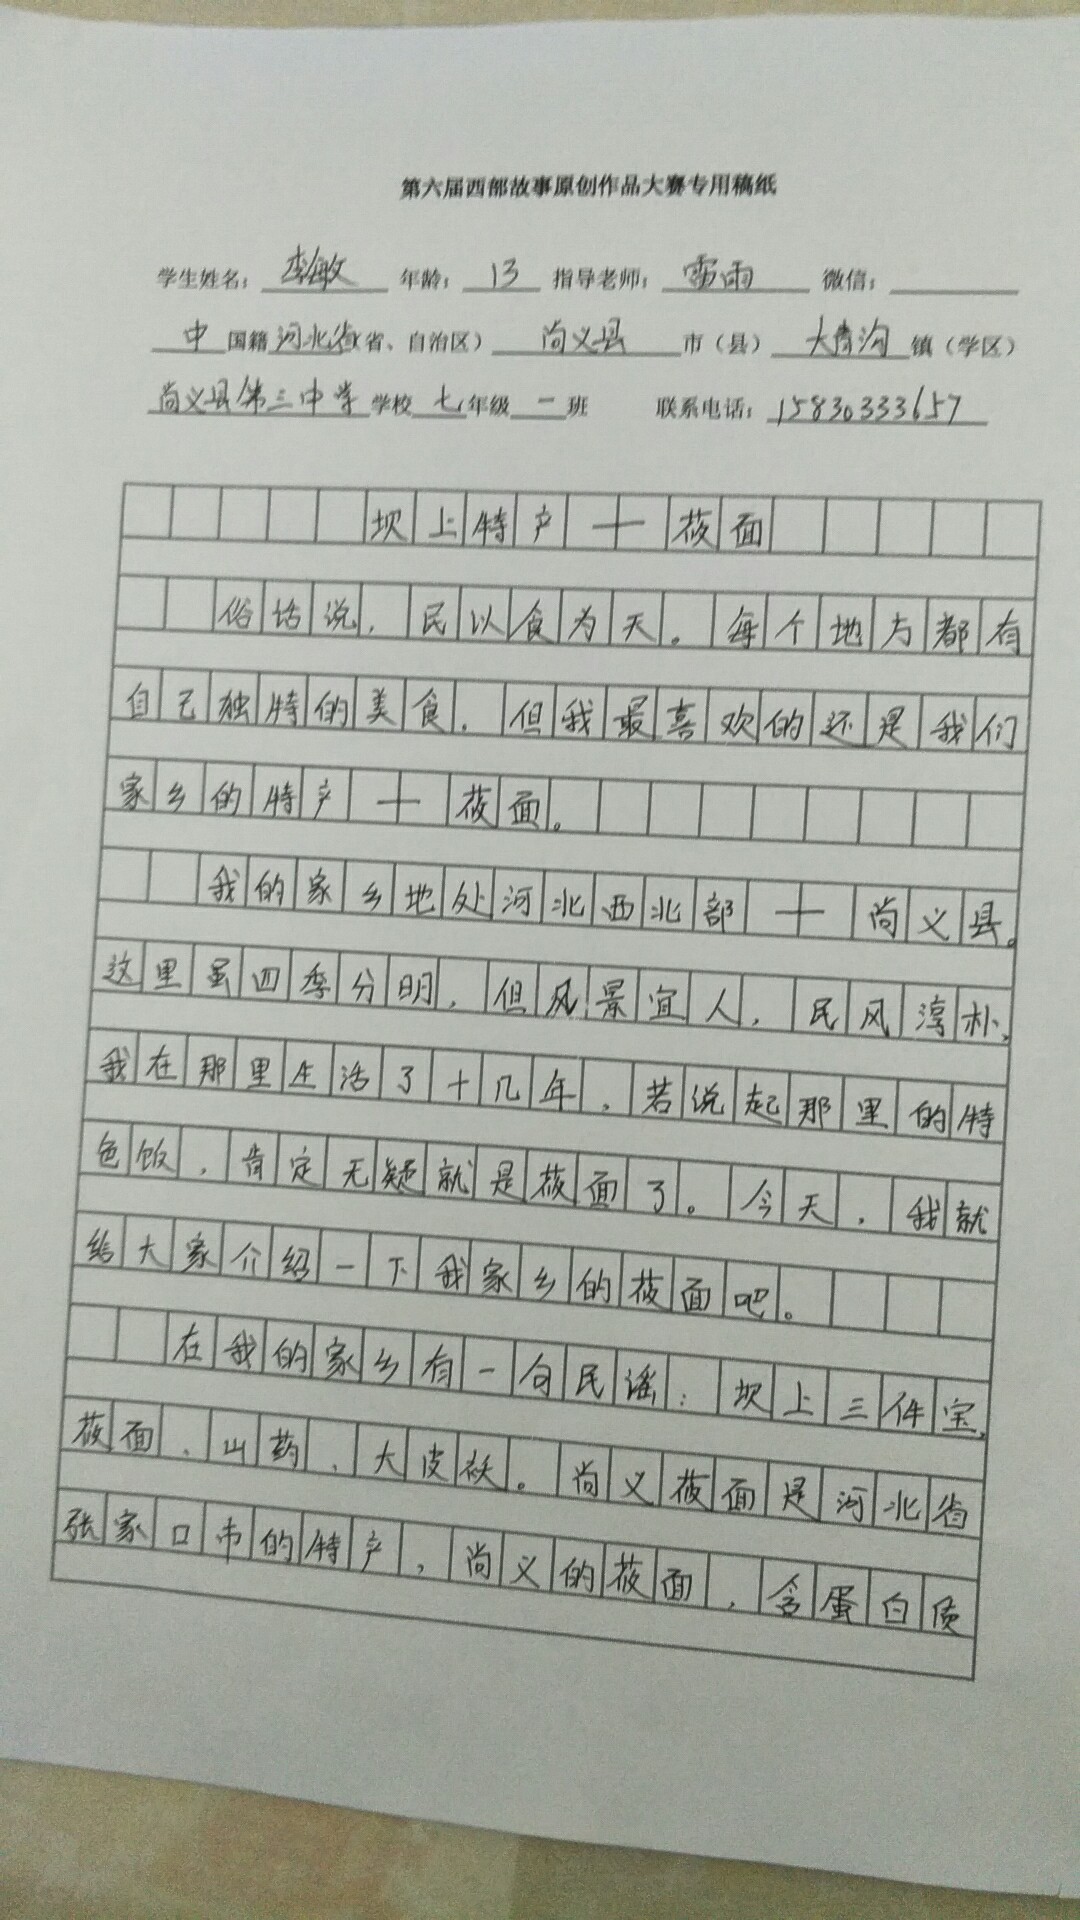 第六届西部故事原创作品大赛专用稿纸
学生姓名：李敏 年龄：13 指导老师：雷雨 微信：
中国籍河北省(省、自治区) 尚义县市（县）大青沟镇（学区）
尚义县第三中学学校七年级一班 联系电话：15830333657
坝上特产——莜面
俗话说，民以食为天。每个地方都有
自己独特的美食，但我最喜欢的还是我们
家乡的特产——莜面。
我的家乡地处河北西北部——尚义县。
这里虽四季分明，但风景宜人，民风淳朴，
我在那里生活了十几年，若说起那里的特
色饭，肯定无疑就是莜面了。今天，我就
给大家介绍一下我家乡的莜面吧。
在我的家乡有一句民谣：坝上三件宝，
莜面、山药、大皮袄。尚义莜面是河北省
张家口市的特产，尚义的莜面，含蛋白质